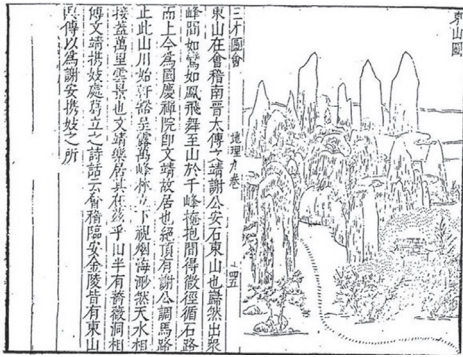 東山圖
三才圖會
地理九卷
十四
東山在會稽南晉太傅文靖謝公安石東山也巋然出眾
峰間如鸞如鳳飛舞至山於千峰掩抱間得微徑循石路
而上今為國慶禪院即文靖故居也絕頂有謝公調馬路
止此山川始軒豁呈露萬峰林立下視烟海渺然天水相
接蓋萬里雲景也文靖樂居其在茲乎山半有薔薇洞相
傅文靖携妓處葛立之詩話云會稽臨安金陵皆有東山
俱傳以為謝安携妓之所